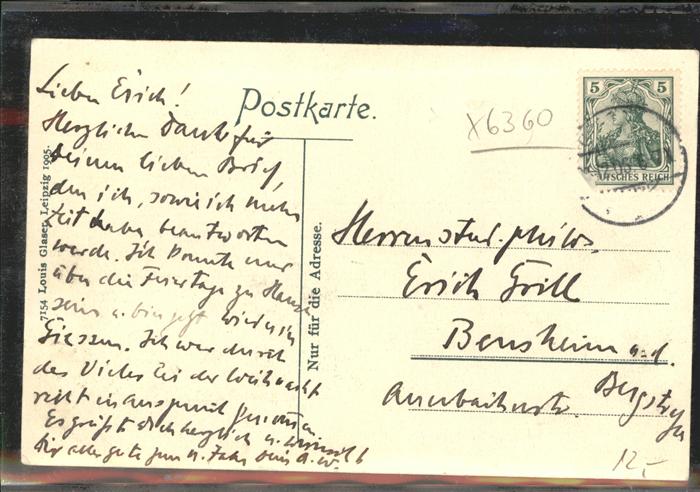 Lieber Erich!
Herzlichen Dank für
deinen lieben Brief,
den ich, sowie ich mehr
Zeit habe beantworten
werde. Ich konnte nur
über die Feiertage zu Hause
sein u. bin jetzt wieder in
Giessen. Ich war durch
das Viele bei der Weihnacht
recht in Anspruch genommen
Es grüßt dich herzlich u. wünscht
dir alles gute zum n. Jahr dein
7154 Louis Glaser, Leipzig 1905.
Postkarte.
Nur für die Adresse.
X6360
5 5
DEUTSCHES REICH
Herrn stud. philos.
Erich Grill
Bensheim a. d.
Bergstr.
Auerbacherstr.
12,-